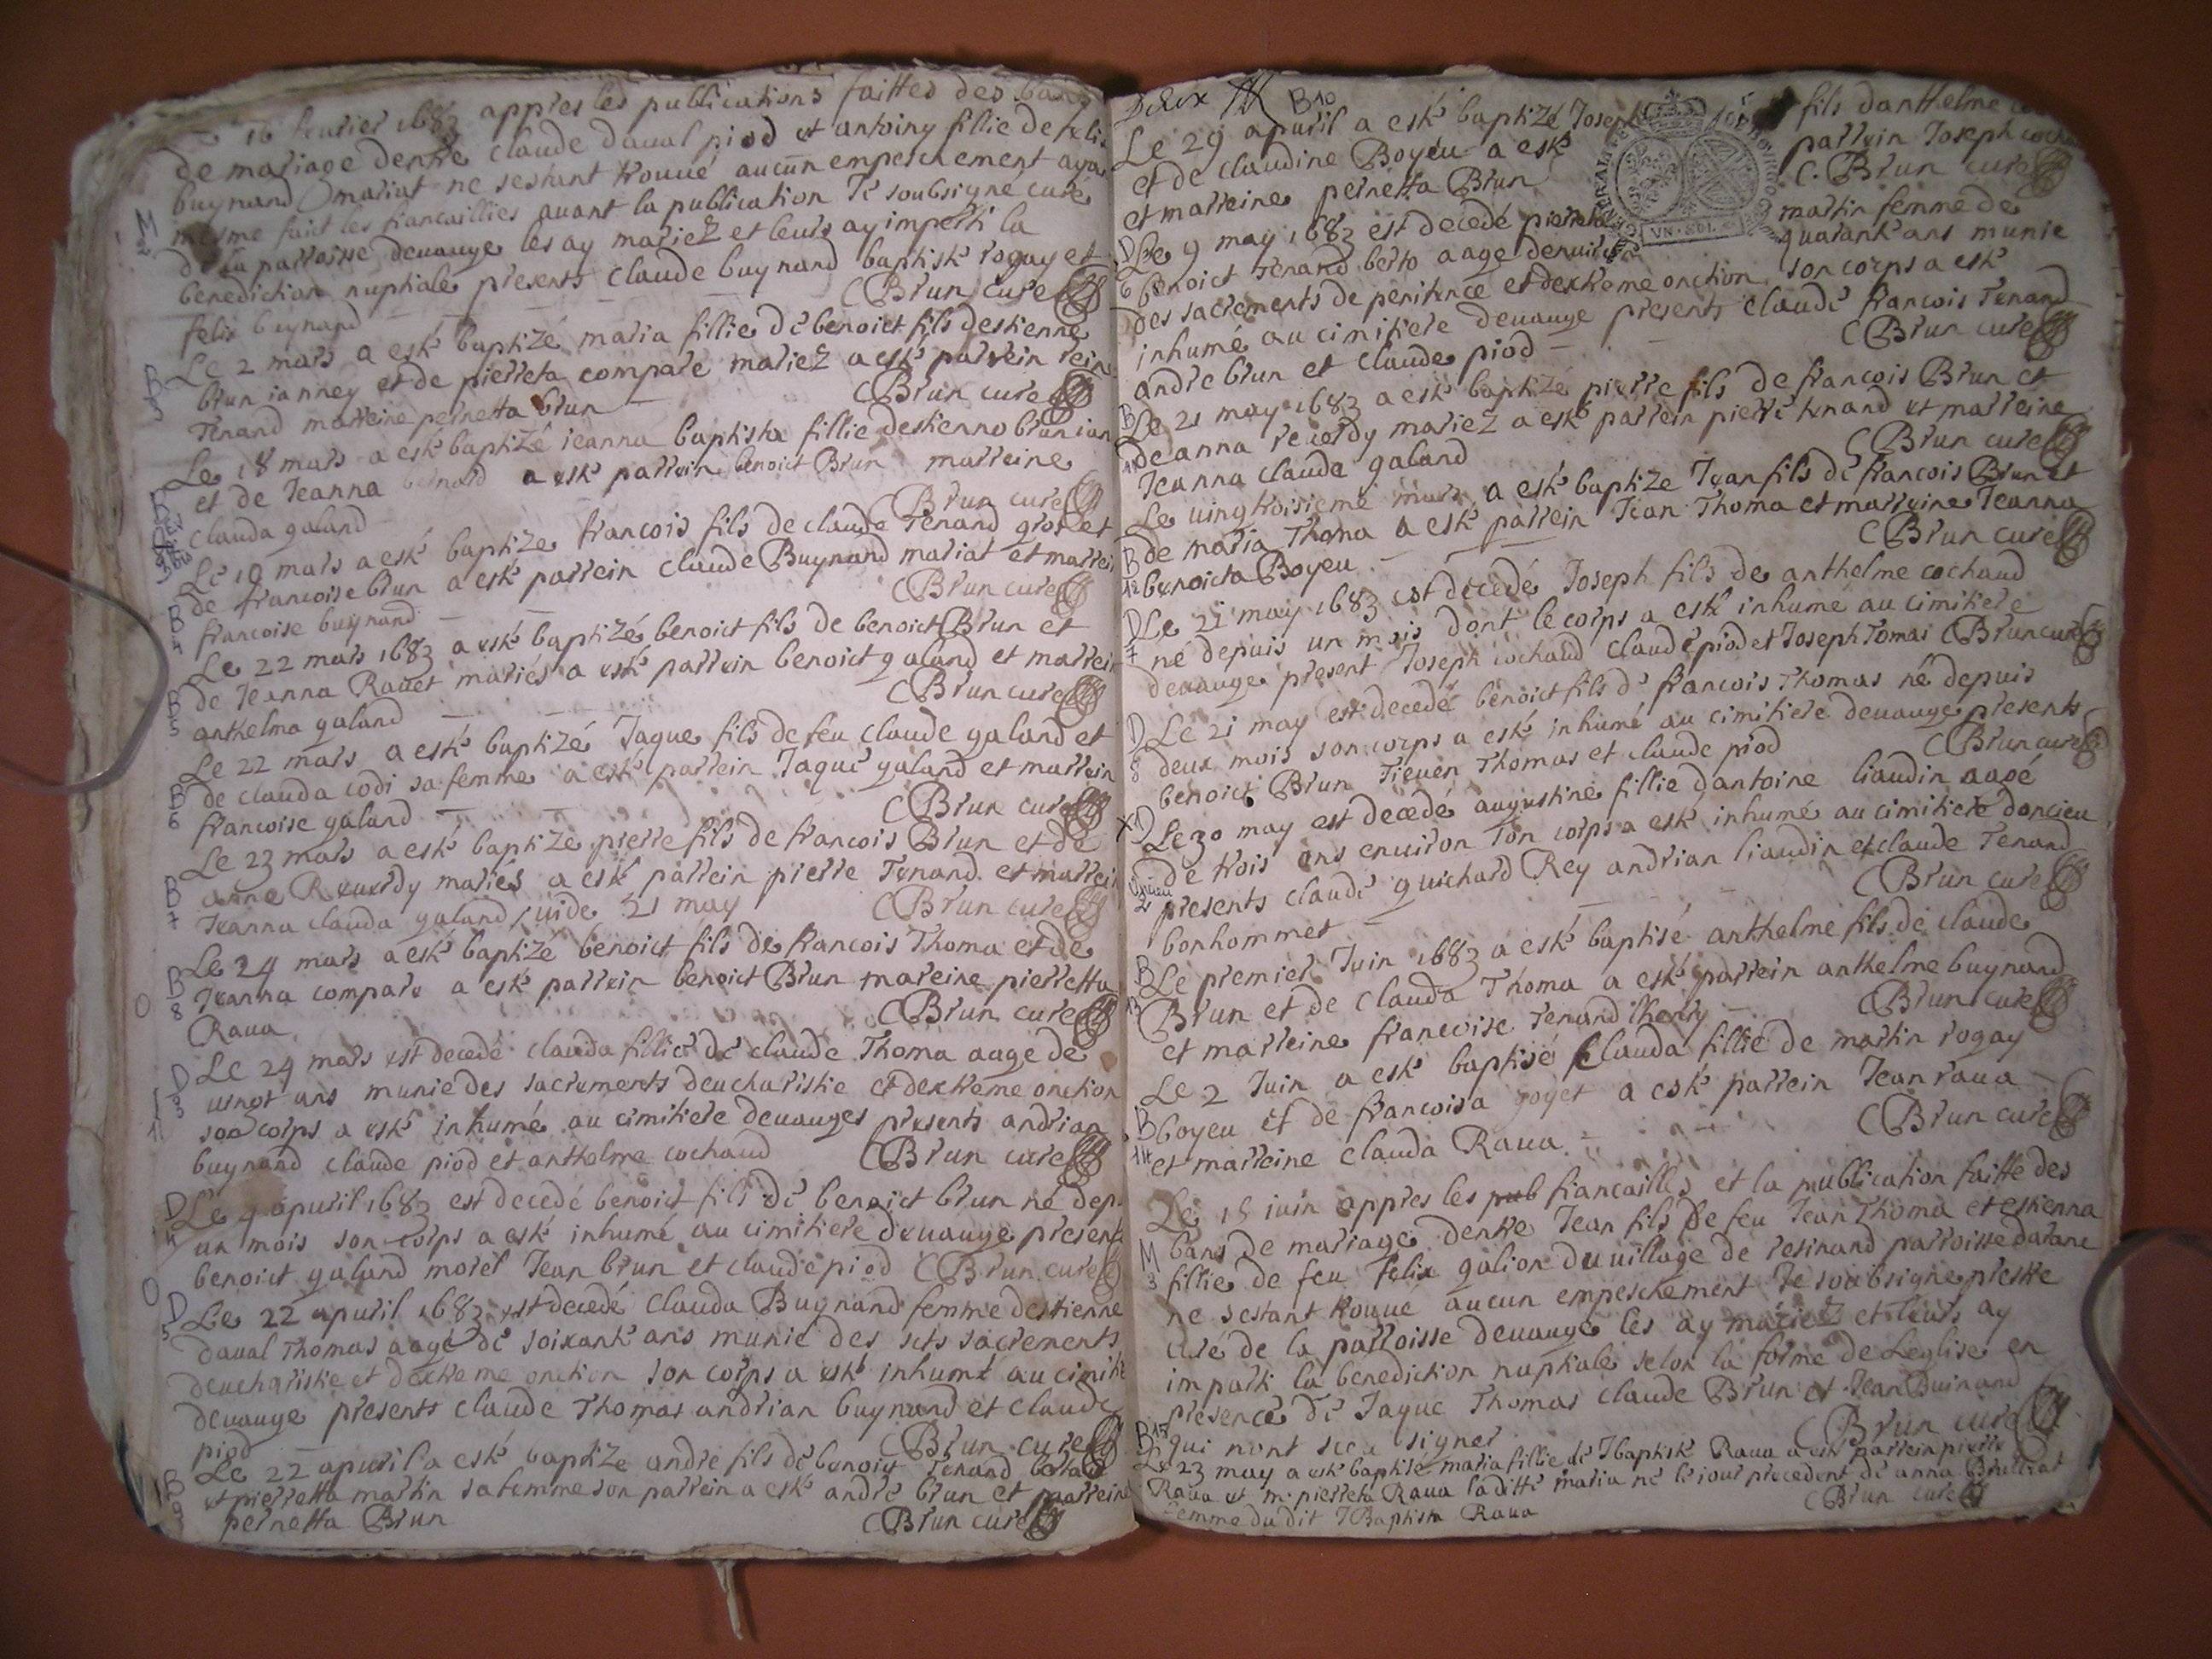 Le 16 feurier 1683 appres les publications faittes des bans
de mariage dentre claude daual piod et antoiny fillie de felix
buynand mariat ne sestant trouué aucun empeschement ayant
mesme fait les fiancaillies auant la publication Je soubsigné curé
de la parroisse deuauge les ay mariez et leurs ay imparti la
benediction nuptiale presents claude buynand baptiste rogay et
felix buynand C Brun curé
Le 2 mars a esté baptizé maria fillie de benoict fils destienne
brun ianney et de pierreta compare mariez a esté parrein
Tenand marreine pernetta brun C Brun curé
Le 18 mars a esté baptizé ieanna baptista fillie destienne brun ian
et de Jeanna a esté parrein benoict Brun marreine
clauda galand C Brun curé
Le 19 mars a esté baptize francois fils de claude Tenand gros et
de francoise brun a esté parrein claude Buynand mariat et marrein
francoise buynand C Brun curé
Le 22 mars 1683 a esté baptizé benoict fils de benoict Brun et
de Jeanna Rauet mariés a esté parrein benoict galand et marrein
anthelma galand C Brun curé
Le 22 mars a esté baptizé Jaque fils de feu claude galand et
de clauda codi sa femme a esté parrein Jaque galand et marrein
francoise galand C Brun curé
Le 23 mars a esté baptize pierre fils de francois Brun et de
anne Reuerdy mariés a esté parrein pierre Tenand et marrein
Jeanna clauda galand / uide 21 may C Brun curé
Le 24 mars a esté baptizé benoict fils de francois Thoma et de
Jeanna compare a esté parrein benoict Brun mareine pierretta
Raua C Brun curé
Le 24 mars est decedé clauda fillie de claude Thoma aage de
uingt ans munie des sacrements deucharistie et dextreme onction
son corps a esté inhumé au cimitiere deuauges presents andrian
buynand claude piod et anthelme cochaud C Brun curé
Le 9 apuril 1683 est decedé benoict fils de benoict brun né dep
un mois son corps a esté inhumé au cimitiere deuauge presents
benoict galand morel Jean brun et claude piod C Brun curé
Le 22 apuril 1683 est decedé clauda Buynand femme destienne
daual Thomas aagé de soixante ans munie des sts sacrements
deucharistie et dextreme onction son corps a esté inhumé au cimitie
deuauge presents claude Thomas andrian buynand et claude
piod C Brun curé
Le 22 apuril a esté baptize andre fils de benoist Tenand berto
et pierretta martin sa femme son parrein a esté andré brun et marreine
pernetta Brun C Brun curé
Deux B10
Le 29 apuril a esté baptizé Joseph fils danthelme
et de claudine Boyeu a esté parrein Joseph cochaud
et marreine pernetta Brun C. Brun curé
Le 9 may 1683 est decedé pierreta martin femme de
benoict Tenand berto aage denuiron quarante ans munie
des sacrements de penitence et dextreme onction son corps a esté
inhumé au cimitiere deuauge presents claude francois Tenand
andre brun et claude piod C Brun curé
Le 21 may 1683 a esté baptizé pierre fils de francois Brun et
deanna reuerdy mariez a esté parrein pierre tenand et marreine
Jeanna clauda galand C Brun curé
Le uingtroisieme mars a esté baptize Jean fils de francois Brun et
de maria Thoma a esté parrein Jean Thoma et marreine Jeanna
benoicta Boyeu C Brun curé
Le 21 may 1683 est decedé Joseph fils de anthelme cochaud
né depuis un mois dont le corps a esté inhumé au cimitiere
deuauge present Joseph cochaud claude piod et Joseph Tomas C Brun curé
Le 21 may est decedé benoict fils de francois Thomas né depuis
deux mois son corps a esté inhumé au cimitiere deuauge presents
benoict Brun Tieuen Thomas et claude piod C Brun curé
Le 30 may est decedé augustine fillie dantoine liaudin aagé
de trois ans enuiron son corps a esté inhumé au cimitiere doncieu
presents claude guichard Rey andrian liaudin et claude Tenand
bonhommet C Brun curé
Le premier Juin 1683 a esté baptisé anthelme fils de claude
Brun et de clauda Thoma a esté parrein anthelme buynand
et marreine francoise Tenand thenry C Brun curé
Le 2 Juin a esté baptisé clauda fillie de martin rogay
boyeu et de francoisa goyet a esté parrein Jean raua
et marreine clauda Raua C Brun curé
Le 15 iuin appres les pub fiancailles et la publication faitte des
bans de mariage dentre Jean fils de feu Jean Thoma et estienna
fillie de feu felix galion du uillage de resinand parroisse daranc
ne sestant trouué aucun empeschement Je soubsigné prestre
curé de la parroisse deuauge les ay mariez et leurs ay
imparti la benediction nuptiale selon la forme de Leglise en
presence de Jaque Thomas claude Brun et Jean Buinand
qui nont sceu signer C Brun curé
B15
Le 23 may a esté baptisé maria fillie de Jbaptiste Raua a esté parrein pierre
Raua et m. pierreta Raua laditte maria né le iour precedent de anna
femme dudit JBaptista Raua C Brun curé